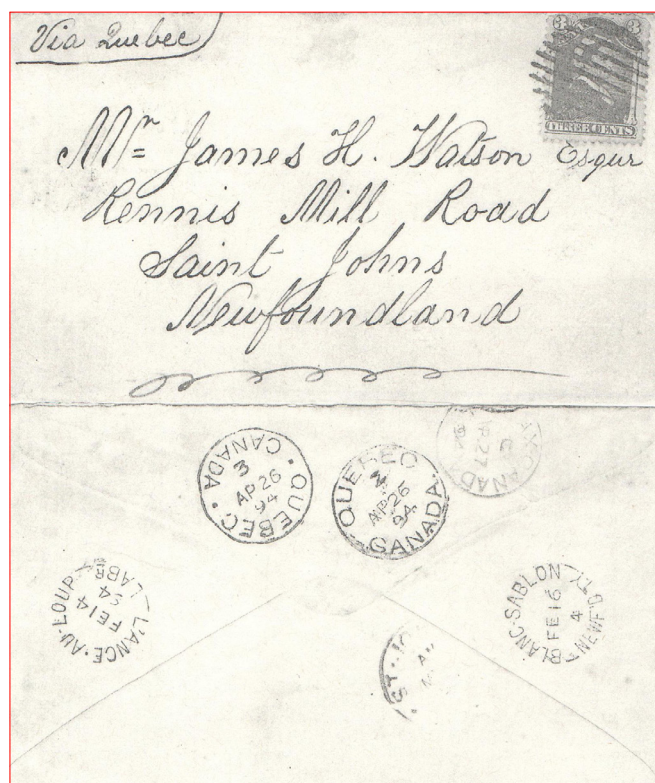 Via Quebec
3 3
THREE CENTS
Mr James H. Watson Esqur
Rennis Mill Road
Saint Johns
Newfoundland
CANADA
AP 27
94
QUEBEC · CANADA ·
3
AP 26
94
QUEBEC
3
AP 26
94
CANADA
L'ANCE-AU-LOUP LABR
FE 14
94
BLANC-SABLON NEWF'D
FE 16
4
ST. JO
AP